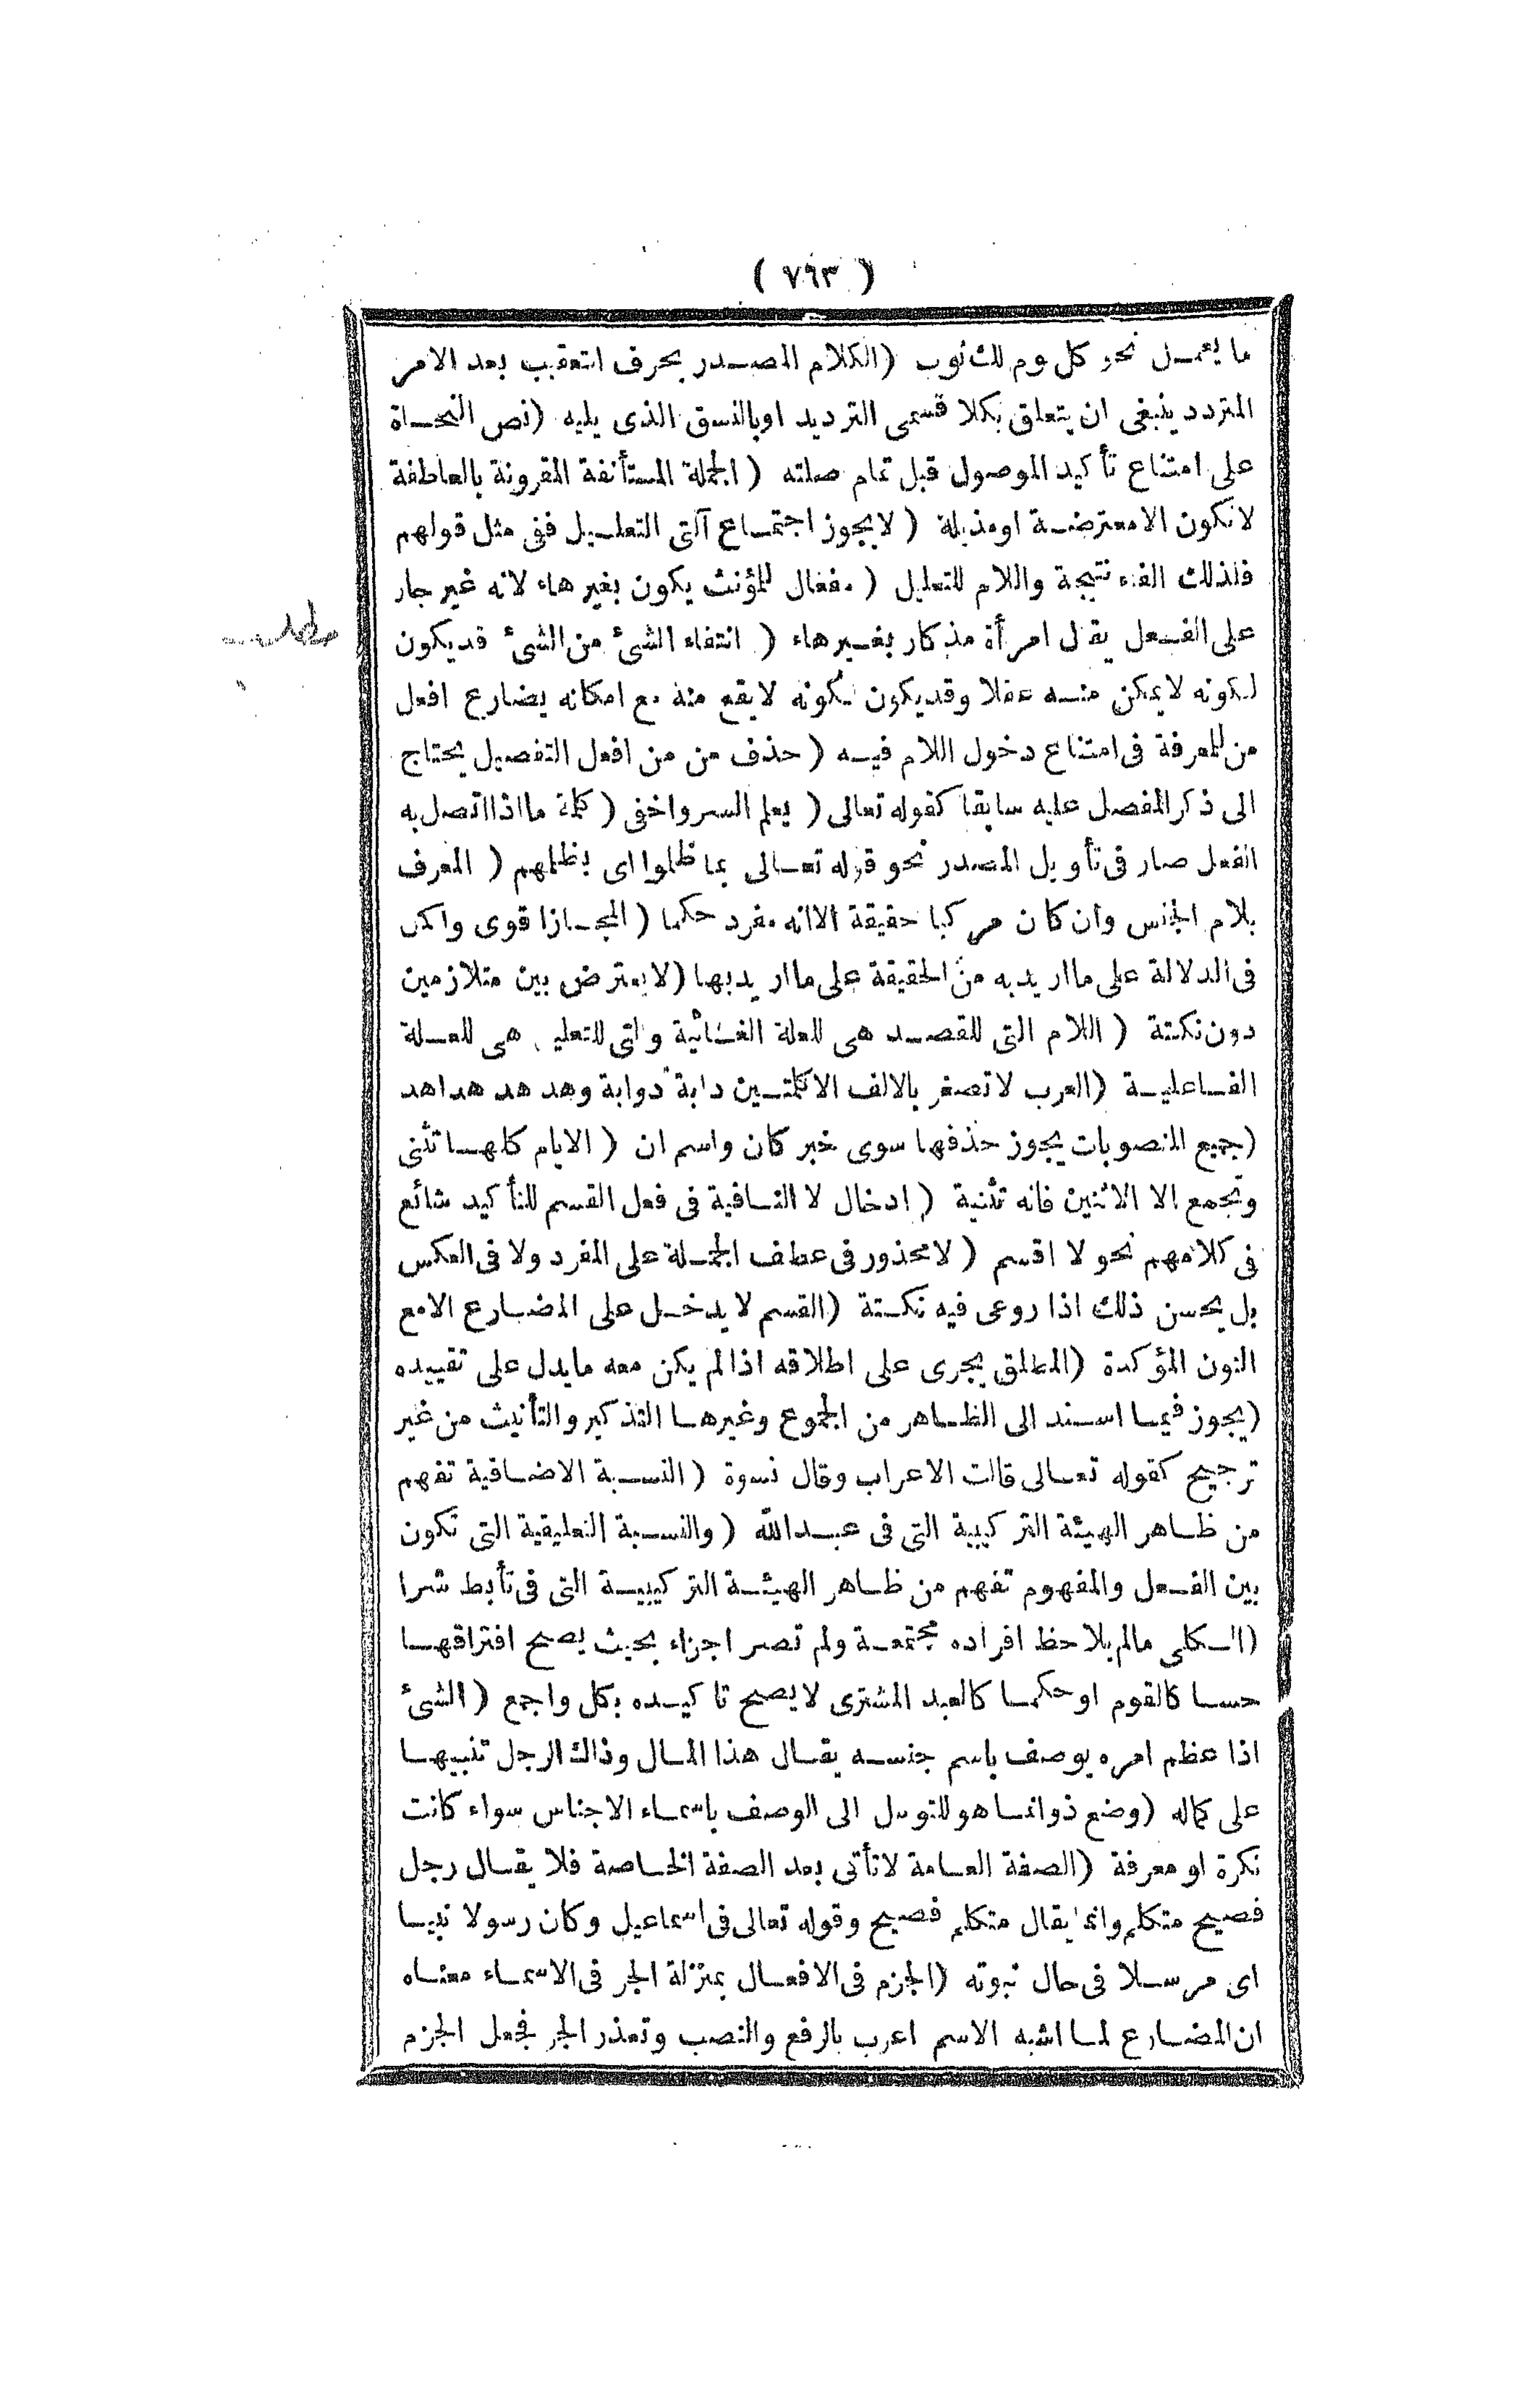 ( ٧٩٣ )
ما يعمل نحو كل يوم لك ثوب (الكلام المصدر بحرف التعقيب بعد الامر
المتردد ينبغى ان يتعلق بكلا قسمى الترديد او بالنسق الذى يليه (نص النحاة
على امتناع تأكيد الموصول قبل تمام صلته ( الجملة المستأنفة المقرونة بالعاطفة
لا تكون الا معترضة او مذيلة ( لا يجوز اجتماع آلتى التعليل ففى مثل قولهم
فلذلك الفاء نتيجة واللام للتعليل ( مفعال للمؤنث يكون بغير هاء لانه غير جار
على الفعل يقال امرأة مذكار بغير هاء ( انتفاء الشئ من الشئ قد يكون
مطلب
لكونه لا يمكن منه عقلا وقد يكون لكونه لا يقع منه مع امكانه يضارع افعل
من للمعرفة فى امتناع دخول اللام فيه ( حذف من من افعل التفضيل يحتاج
الى ذكر المفضل عليه سابقا كقوله تعالى ( يعلم السر واخفى ( كلمة ما اذا اتصل به
الفعل صار فى تأويل المصدر نحو قوله تعالى بما ظلموا اى بظلمهم ( المعرف
بلام الجنس وان كان مركبا حقيقة الا انه مفرد حكما ( المجاز اقوى واكمل
فى الدلالة على ما اريد به من الحقيقة على ما اريد بها (لا يعترض بين متلازمين
دون نكتة ( اللام التى للقصد هى للعلة الغائية والتى للتعليل هى للعلة
الفاعلية (العرب لا تصغر بالالف الا كلمتين دابة دوابة وهدهد هداهد
(جميع المنصوبات يجوز حذفها سوى خبر كان واسم ان ( الايام كلها تثنى
وتجمع الا الاثنين فانه تثنية ( ادخال لا النافية فى فعل القسم للتأكيد شائع
فى كلامهم نحو لا اقسم ( لا محذور فى عطف الجملة على المفرد ولا فى العكس
بل يحسن ذلك اذا روعى فيه نكتة (القسم لا يدخل على المضارع الا مع
النون المؤكدة (المطلق يجرى على اطلاقه اذا لم يكن معه ما يدل على تقييده
(يجوز فيما اسند الى الظاهر من الجموع وغيرها التذكير والتأنيث من غير
ترجيح كقوله تعالى قالت الاعراب وقال نسوة (النسبة الاضافية تفهم
من ظاهر الهيئة التركيبية التى فى عبدالله (والنسبة التعليقية التى تكون
بين الفعل والمفهوم تفهم من ظاهر الهيئة التركيبية التى فى تأبط شرا
(الكلى ما لم يلاحظ افراده مجتمعة ولم تصر اجزاء بحيث يصح افتراقها
حسا كالقوم او حكما كالعبد المشترى لا يصح تاكيده بكل واجمع ( الشئ
اذا عظم امره يوصف باسم جنسه يقال هذا المال وذاك الرجل تنبيها
على كماله (وضع ذو انما هو للتوسل الى الوصف باسماء الاجناس سواء كانت
نكرة او معرفة (الصفة العامة لا تأتى بعد الصفة الخاصة فلا يقال رجل
فصيح متكلم وانما يقال متكلم فصيح وقوله تعالى فى اسماعيل وكان رسولا نبيا
اى مرسلا فى حال نبوته (الجزم فى الافعال بمنزلة الجر فى الاسماء معناه
ان المضارع لما اشبه الاسم اعرب بالرفع والنصب وتعذر الجر فجعل الجزم